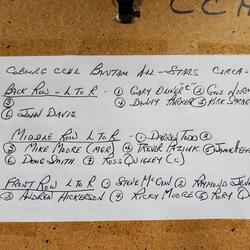 COBOURG CCHL BANTAM ALL-STARS CIRCA-
BACK ROW - L TO R - ① GARY OLIVER "C" ② GUS
③ ④ DANNY PARKER ⑤ KIRK
⑥ JOHN DAVIS.
MIDDLE ROW L TO R - ① DARREN TODD ②
③ MIKE MOORE (MGR) ④ TREVOR ⑤
⑥ DOUG SMITH. ⑦ ROSS QUIGLEY (C)
FRONT ROW L TO R ① STEVE MCCANN ② RAYMOND
③ ANDREW HICKERSON ④ RICKY MOORE ⑤ RORY